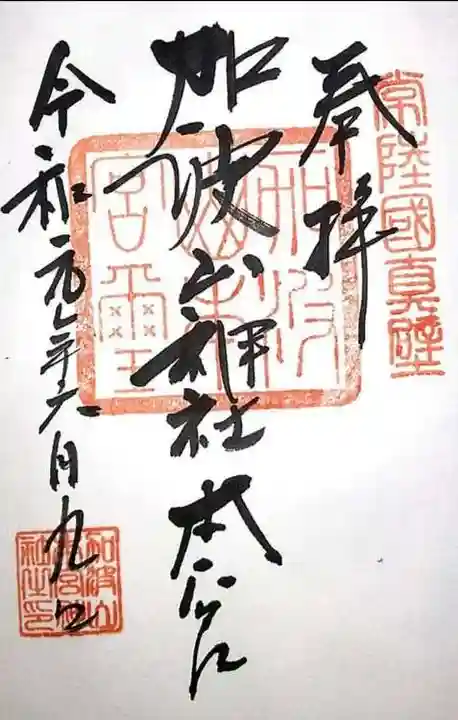 常陸國真壁
奉拝
加波山神社本宮
令和元年六月九日
加波山本宮璽